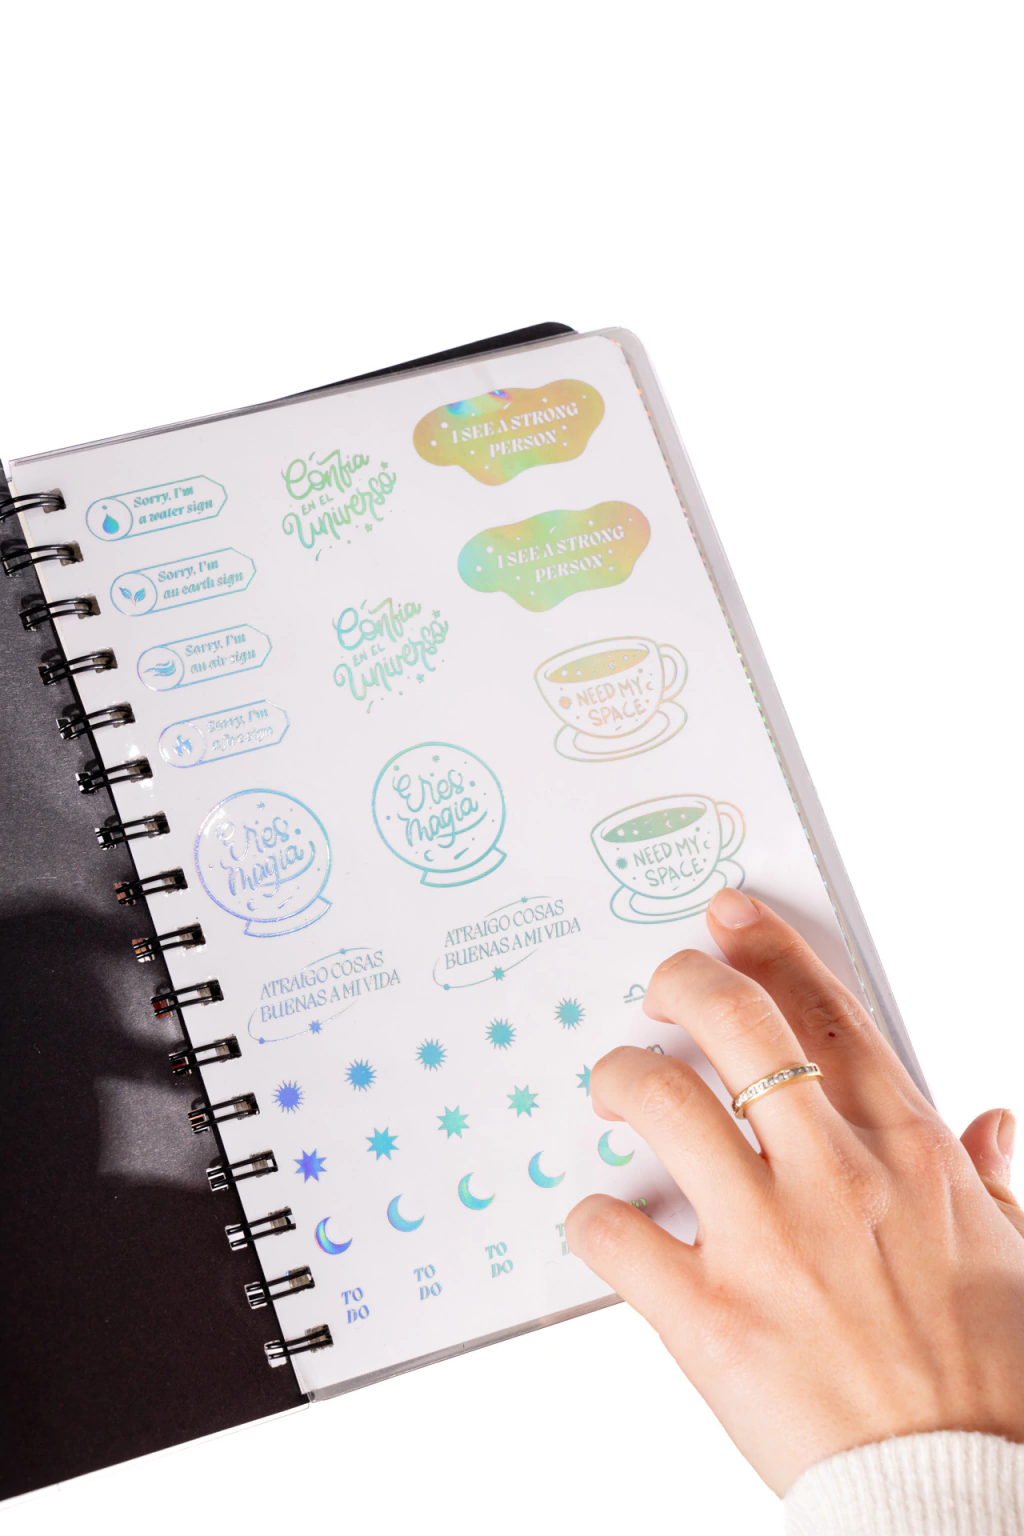 Sorry, I'm
a water sign
Sorry, I'm
an earth sign
Sorry, I'm
an air sign
Sorry, I'm
a fire sign
Confía
EN EL
Universo
Confía
EN EL
Universo
I SEE A STRONG
PERSON
I SEE A STRONG
PERSON
NEED MY
SPACE
NEED MY
SPACE
Eres
magia
Eres
magia
ATRAIGO COSAS
BUENAS A MI VIDA
ATRAIGO COSAS
BUENAS A MI VIDA
TO
DO
TO
DO
TO
DO